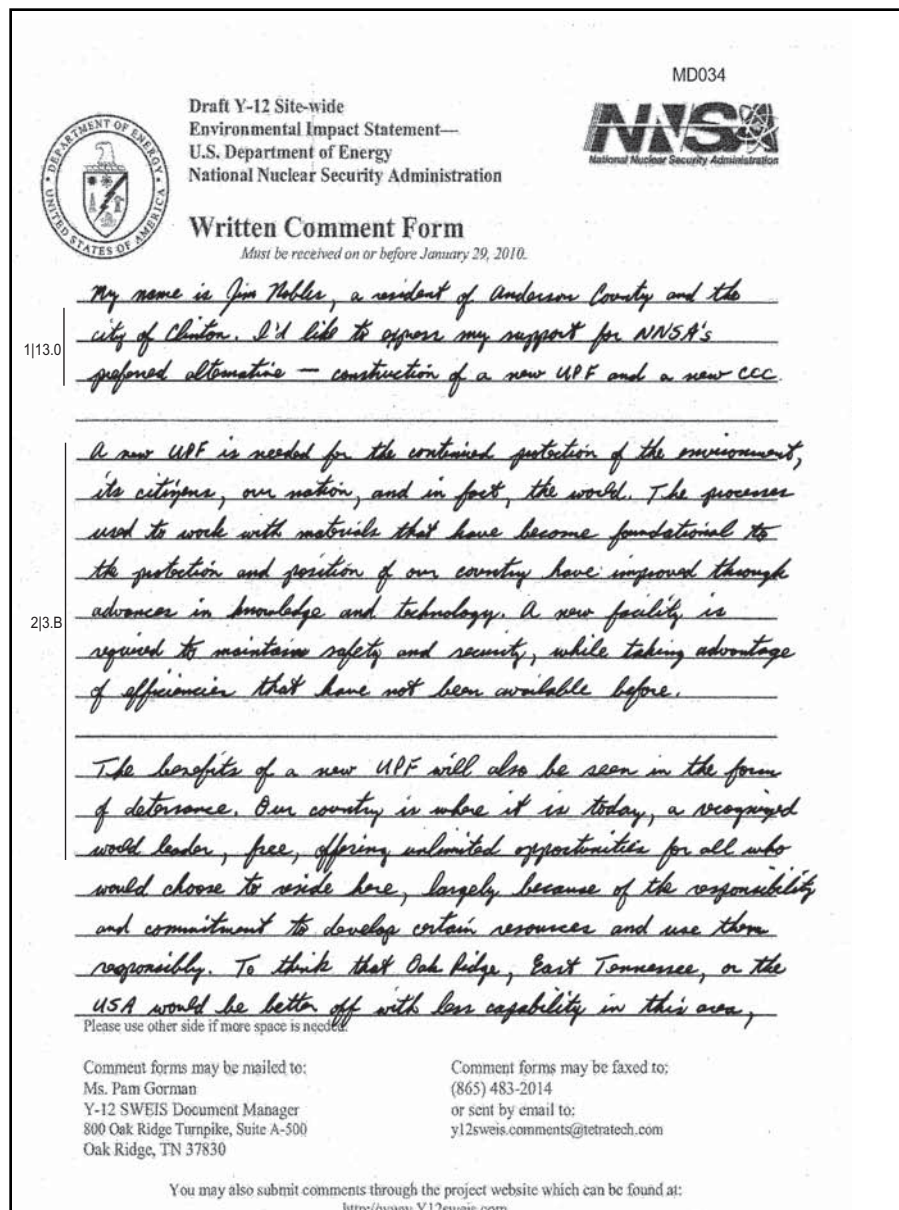 MD034
Draft Y-12 Site-wide
Environmental Impact Statement—
U.S. Department of Energy
National Nuclear Security Administration
DEPARTMENT OF ENERGY
UNITED STATES OF AMERICA
NNSA
National Nuclear Security Administration
Written Comment Form
Must be received on or before January 29, 2010.
My name is Jim Nobles, a resident of Anderson County and the
city of Clinton. I'd like to express my support for NNSA's
1|13.0
preferred alternative — construction of a new UPF and a new CCC.
A new UPF is needed for the continued protection of the environment,
its citizens, our nation, and in fact, the world. The processes
used to work with materials that have become foundational to
the protection and position of our country have improved through
advances in knowledge and technology. A new facility is
2|3.B
required to maintain safety and security, while taking advantage
of efficiencies that have not been available before.
The benefits of a new UPF will also be seen in the form
of deterrance. Our country is where it is today, a recognized
world leader, free, offering unlimited opportunities for all who
would choose to reside here, largely because of the responsibility
and commitment to develop certain resources and use them
responsibly. To think that Oak Ridge, East Tennessee, or the
USA would be better off with less capability in this area,
Please use other side if more space is needed.
Comment forms may be mailed to:
Ms. Pam Gorman
Y-12 SWEIS Document Manager
800 Oak Ridge Turnpike, Suite A-500
Oak Ridge, TN 37830
Comment forms may be faxed to:
(865) 483-2014
or sent by email to:
y12sweis.comments@tetratech.com
You may also submit comments through the project website which can be found at:
http://www.Y12sweis.com